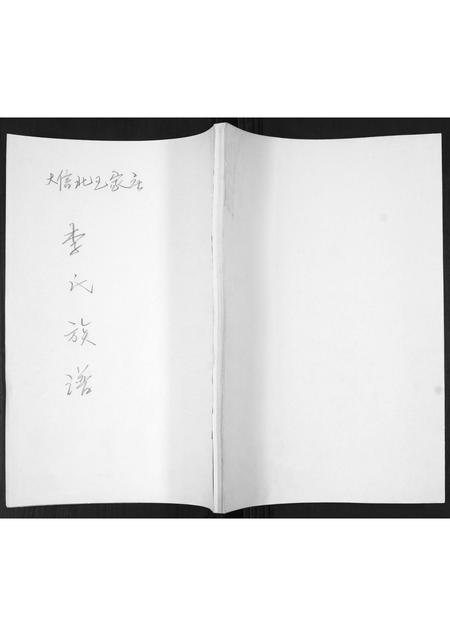 大信北王家庄
李氏族谱